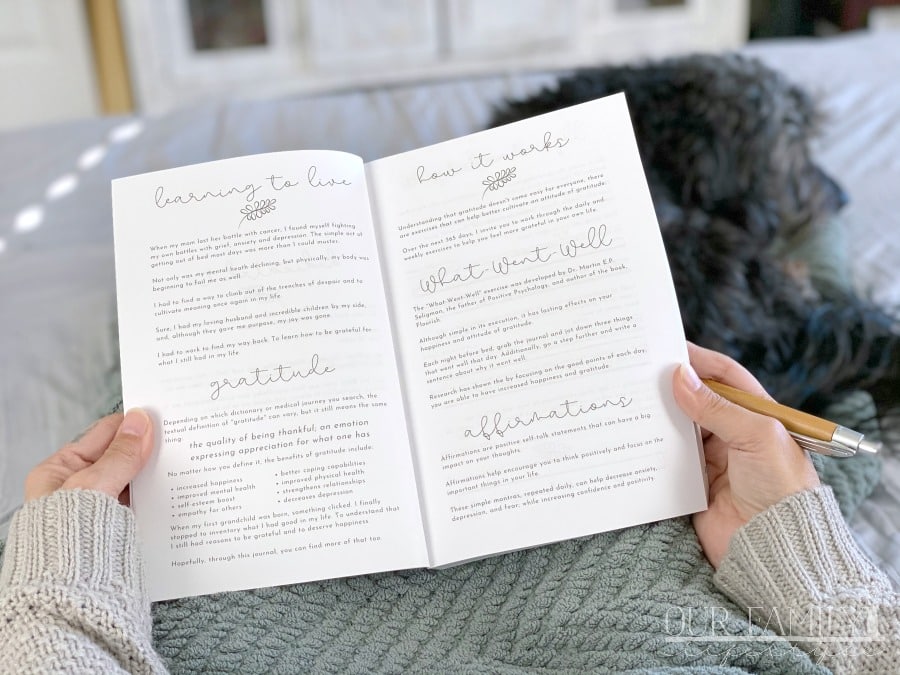 learning to live
When my mom lost her battle with cancer, I found myself fighting
my own battles with grief, anxiety and depression. The simple act of
getting out of bed most days was more than I could muster.
Not only was my mental heath declining, but physically, my body was
beginning to fail me as well.
I had to find a way to climb out of the trenches of despair and to
cultivate meaning once again in my life.
Sure, I had my loving husband and incredible children by my side,
and, although they gave me purpose, my joy was gone.
I had to work to find my way back. To learn how to be grateful for
what I still had in my life.
gratitude
Depending on which dictionary or medical journey you search, the
textual definition of "gratitude" can vary, but it still means the same
thing:
the quality of being thankful; an emotion
expressing appreciation for what one has
No matter how you define it, the benefits of gratitude include:
• increased happiness
• improved mental health
• self-esteem boost
• empathy for others
• better coping capabilities
• improved physical health
• strengthens relationships
• decreases depression
When my first grandchild was born, something clicked. I finally
stopped to inventory what I had good in my life. To understand that
I still had reasons to be grateful and to deserve happiness.
Hopefully, through this journal, you can find more of that too.
how it works
Understanding that gratitude doesn't come easy for everyone, there
are exercises that can help better cultivate an attitude of gratitude.
Over the next 365 days, I invite you to work through the daily and
weekly exercises to help you feel more grateful in your own life.
What-Went-Well
The "What-Went-Well" exercise was developed by Dr. Martin E.P.
Seligman, the father of Positive Psychology, and author of the book,
Flourish.
Although simple in its execution, it has lasting effects on your
happiness and attitude of gratitude.
Each night before bed, grab the journal and jot down three things
that went well that day. Additionally, go a step further and write a
sentence about why it went well.
Research has shown the by focusing on the good points of each day,
you are able to have increased happiness and gratitude.
affirmations
Affirmations are positive self-talk statements that can have a big
impact on your thoughts.
Affirmations help encourage you to think positively and focus on the
important things in your life.
These simple mantras, repeated daily, can help decrease anxiety,
depression, and fear, while increasing confidence and positivity.
OUR FAMILY